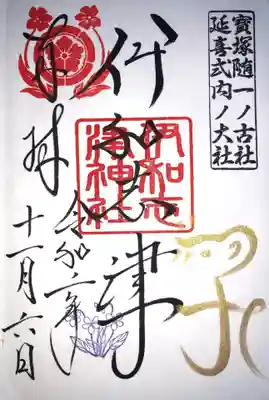 寳塚随一ノ古社
延喜式内ノ大社
子
伊和志津
伊和志
津神社
奉拝
令和二年
十一月六日